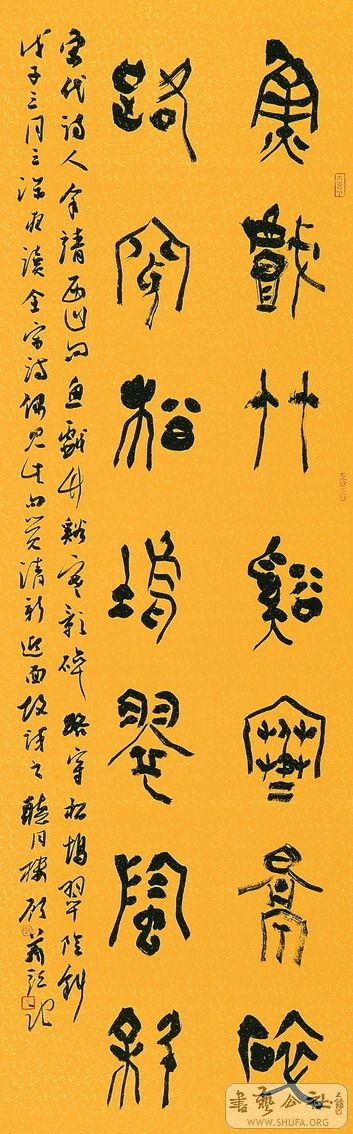 魚戲竹谿寒影碎
路穿松塢翠陰斜
宋代詩人余靖西山句魚戲竹谿寒影碎路穿松塢翠陰斜
戊子三月之深夜讀全宋詩偶見此句覺清新迎面故錄之聽月樓顧記
書藝公社
WWW.SHUFA.ORG